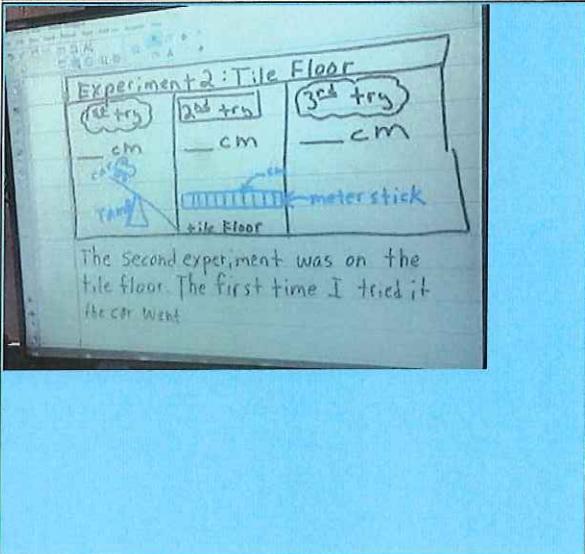 Experiment 2: Tile Floor
1st try
2nd try
3rd try
__ cm
__ cm
__ cm
car
cm
meter stick
ramp
tile Floor
The second experiment was on the
tile floor. The first time I tried it
the car went